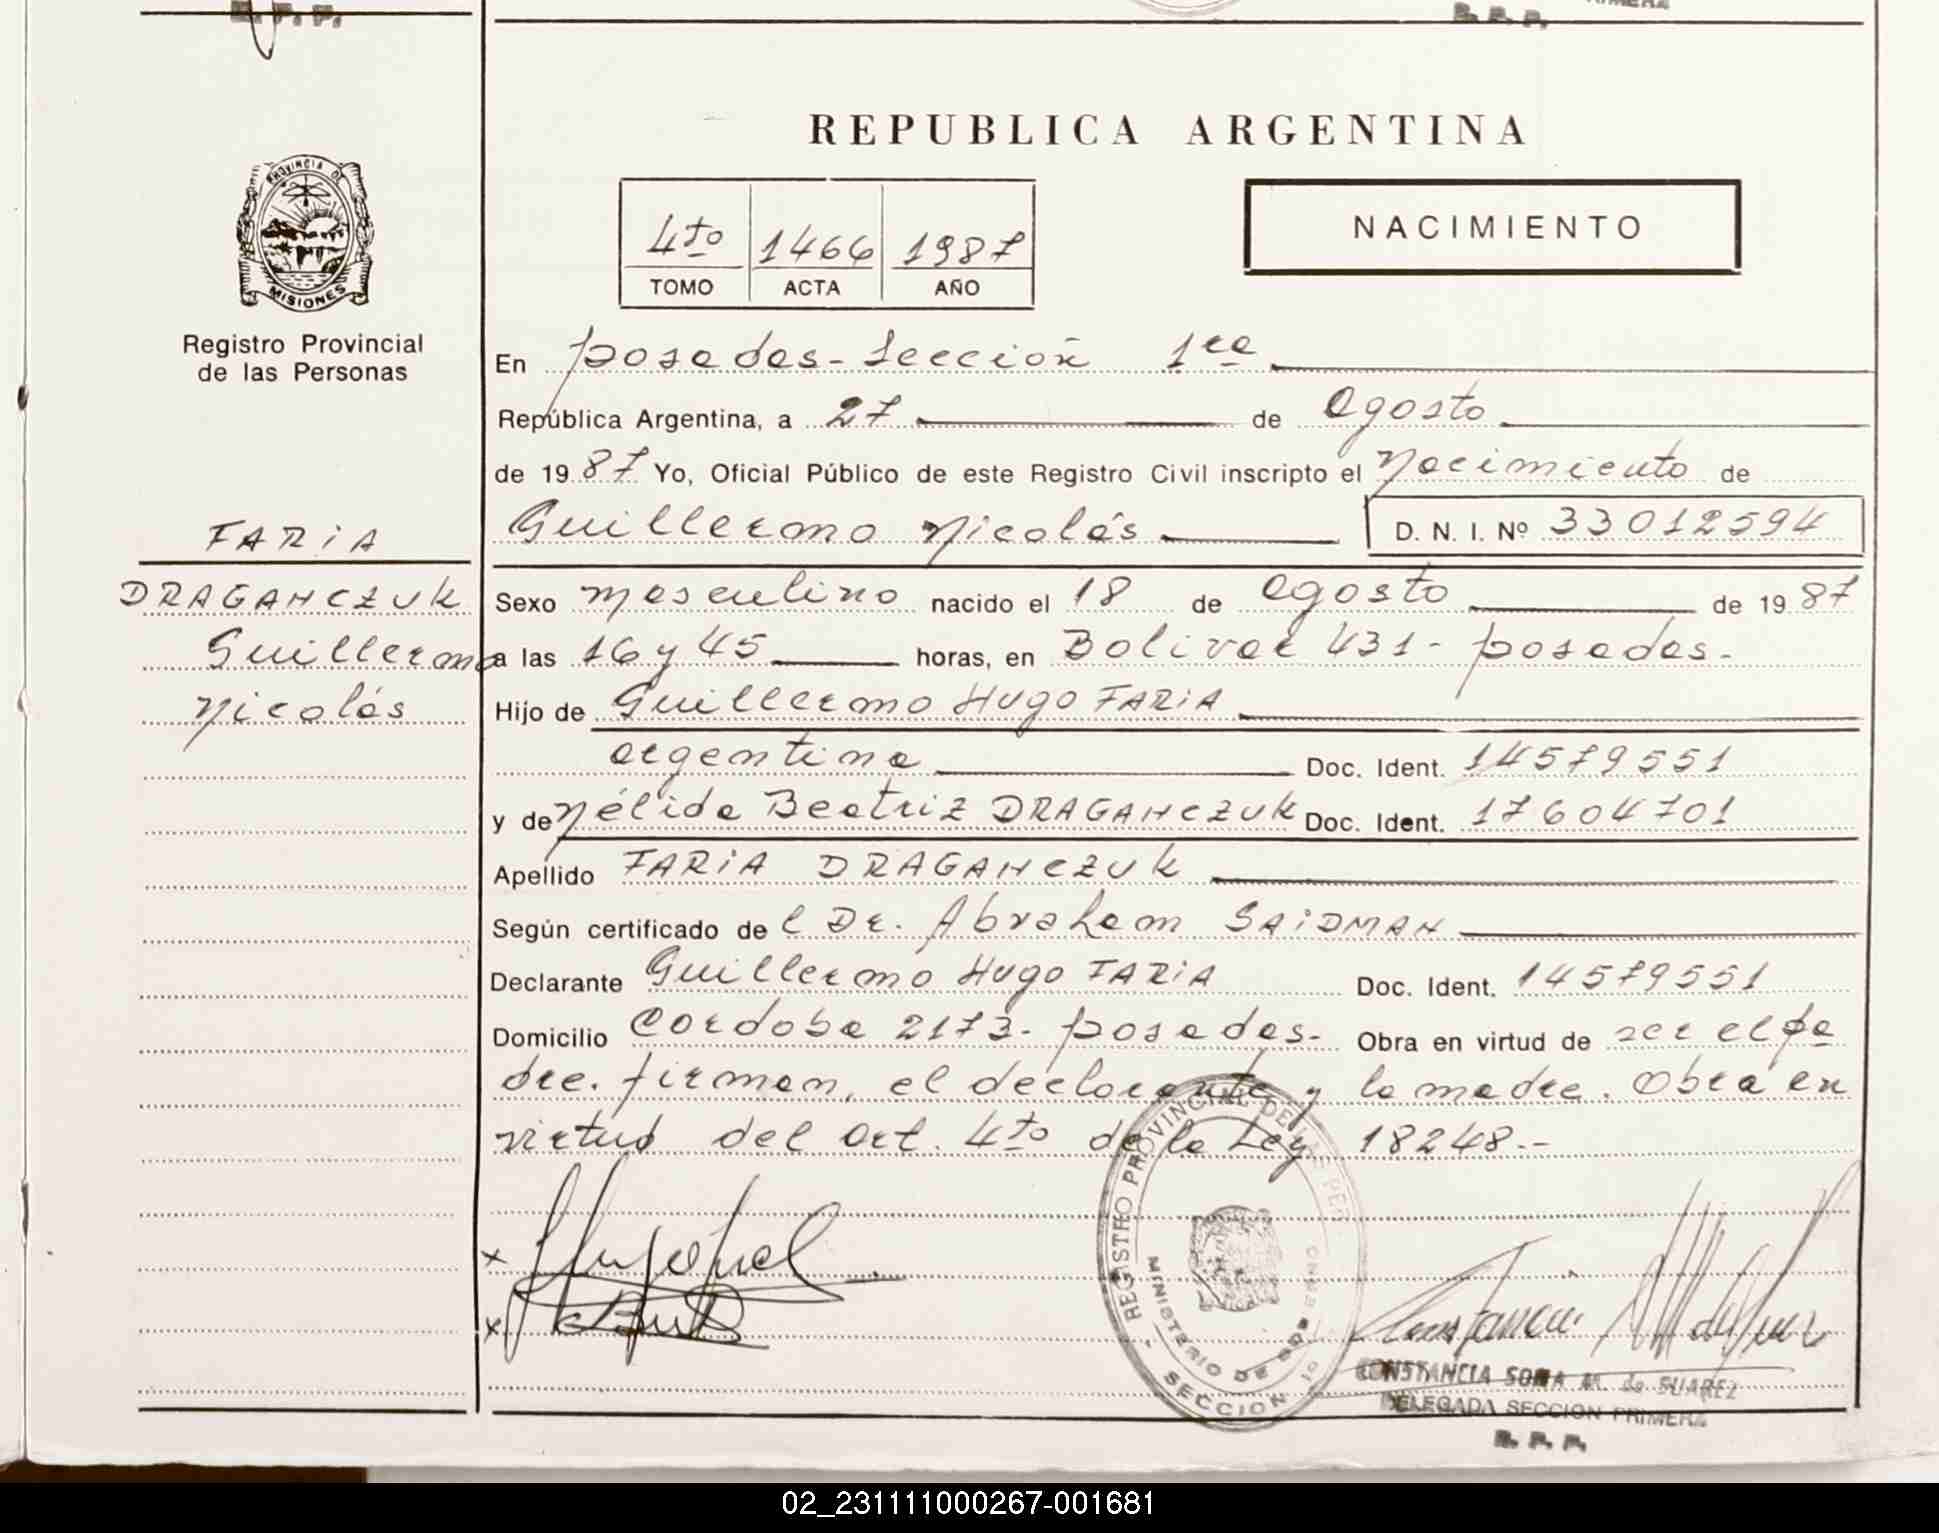 R. P. P.
R. P. P.
REPUBLICA ARGENTINA
PROVINCIA DE
MISIONES
4to 1466 1987
TOMO ACTA AÑO
NACIMIENTO
Registro Provincial
de las Personas
En Posadas - Sección 1ra
República Argentina, a 27 de agosto
de 1987 Yo, Oficial Público de este Registro Civil inscripto el Nacimiento de
Guillermo Nicolás D. N. I. Nº 33012594
FARIA
DRAGANCZUK
Guillermo
Nicolás
Sexo Masculino nacido el 18 de agosto de 1987
a las 16 y 45 horas, en Bolivar 431 - Posadas -
Hijo de Guillermo Hugo FARIA
argentina Doc. Ident. 14579551
y de Nélida Beatriz DRAGANCZUK Doc. Ident. 17604701
Apellido FARIA DRAGANCZUK
Según certificado de l Dr. Abraham SAIDMAN
Declarante Guillermo Hugo FARIA Doc. Ident. 14579551
Domicilio Cordoba 2173 - Posadas - Obra en virtud de ser el pa
dre. firman, el declarante y la madre. Obra en
virtud del Art. 4to de la Ley 18248.-
REGISTRO PROVINCIAL DE LAS PER
MINISTERIO DE GOBIERNO
SECCION 1a
CONSTANCIA SONIA M. de SUAREZ
DELEGADA SECCION PRIMERA
R. P. P.
02_231111000267-001681